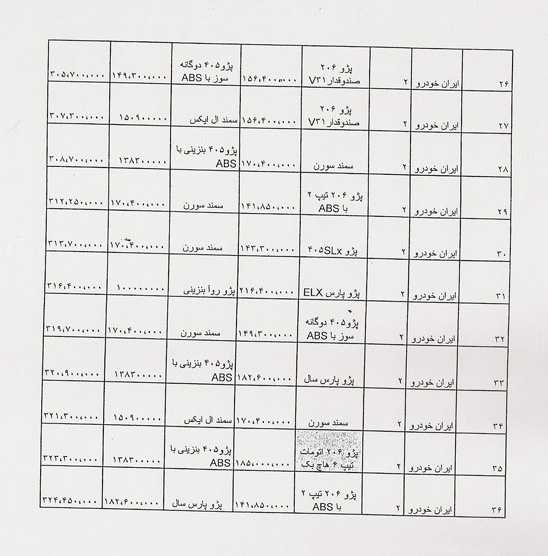 ۲۶ ایران خودرو ۲ پژو ۲۰۶ صندوقدار V۳۱ ۱۵۶،۴۰۰،۰۰۰ پژو ۴۰۵ دوگانه سوز با ABS ۱۴۹،۳۰۰،۰۰۰ ۳۰۵،۷۰۰،۰۰۰
۲۷ ایران خودرو ۲ پژو ۲۰۶ صندوقدار V۳۱ ۱۵۶،۴۰۰،۰۰۰ سمند ال ایکس ۱۵۰۹۰۰۰۰۰ ۳۰۷،۳۰۰،۰۰۰
۲۸ ایران خودرو ۲ سمند سورن ۱۷۰،۴۰۰،۰۰۰ پژو ۴۰۵ بنزینی با ABS ۱۳۸۳۰۰۰۰۰ ۳۰۸،۷۰۰،۰۰۰
۲۹ ایران خودرو ۲ پژو ۲۰۶ تیپ ۲ با ABS ۱۴۱،۸۵۰،۰۰۰ سمند سورن ۱۷۰،۴۰۰،۰۰۰ ۳۱۲،۲۵۰،۰۰۰
۳۰ ایران خودرو ۲ پژو ۴۰۵SLx ۱۴۳،۳۰۰،۰۰۰ سمند سورن ۱۷۰،۴۰۰،۰۰۰ ۳۱۳،۷۰۰،۰۰۰
۳۱ ایران خودرو ۲ پژو پارس ELX ۲۱۶،۴۰۰،۰۰۰ پژو روآ بنزینی ۱۰۰۰۰۰۰۰۰ ۳۱۶،۴۰۰،۰۰۰
۳۲ ایران خودرو ۲ پژو ۴۰۵ دوگانه سوز با ABS ۱۴۹،۳۰۰،۰۰۰ سمند سورن ۱۷۰،۴۰۰،۰۰۰ ۳۱۹،۷۰۰،۰۰۰
۳۳ ایران خودرو ۲ پژو پارس سال ۱۸۲،۶۰۰،۰۰۰ پژو ۴۰۵ بنزینی با ABS ۱۳۸۳۰۰۰۰۰ ۳۲۰،۹۰۰،۰۰۰
۳۴ ایران خودرو ۲ سمند سورن ۱۷۰،۴۰۰،۰۰۰ سمند ال ایکس ۱۵۰۹۰۰۰۰۰ ۳۲۱،۳۰۰،۰۰۰
۳۵ ایران خودرو ۲ پژو ۲۰۶ اتومات تیپ ۶ هاچ بک ۱۸۵،۰۰۰،۰۰۰ پژو ۴۰۵ بنزینی با ABS ۱۳۸۳۰۰۰۰۰ ۳۲۳،۳۰۰،۰۰۰
۳۶ ایران خودرو ۲ پژو ۲۰۶ تیپ ۲ با ABS ۱۴۱،۸۵۰،۰۰۰ پژو پارس سال ۱۸۲،۶۰۰،۰۰۰ ۳۲۴،۴۵۰،۰۰۰